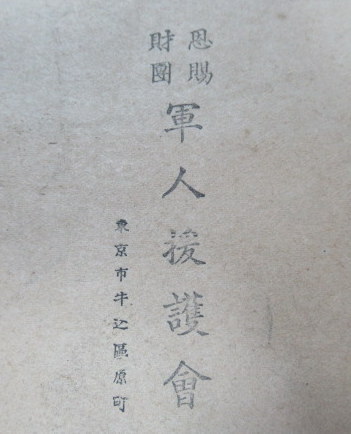 恩賜
財團
軍人援護會
東京市牛込區原町